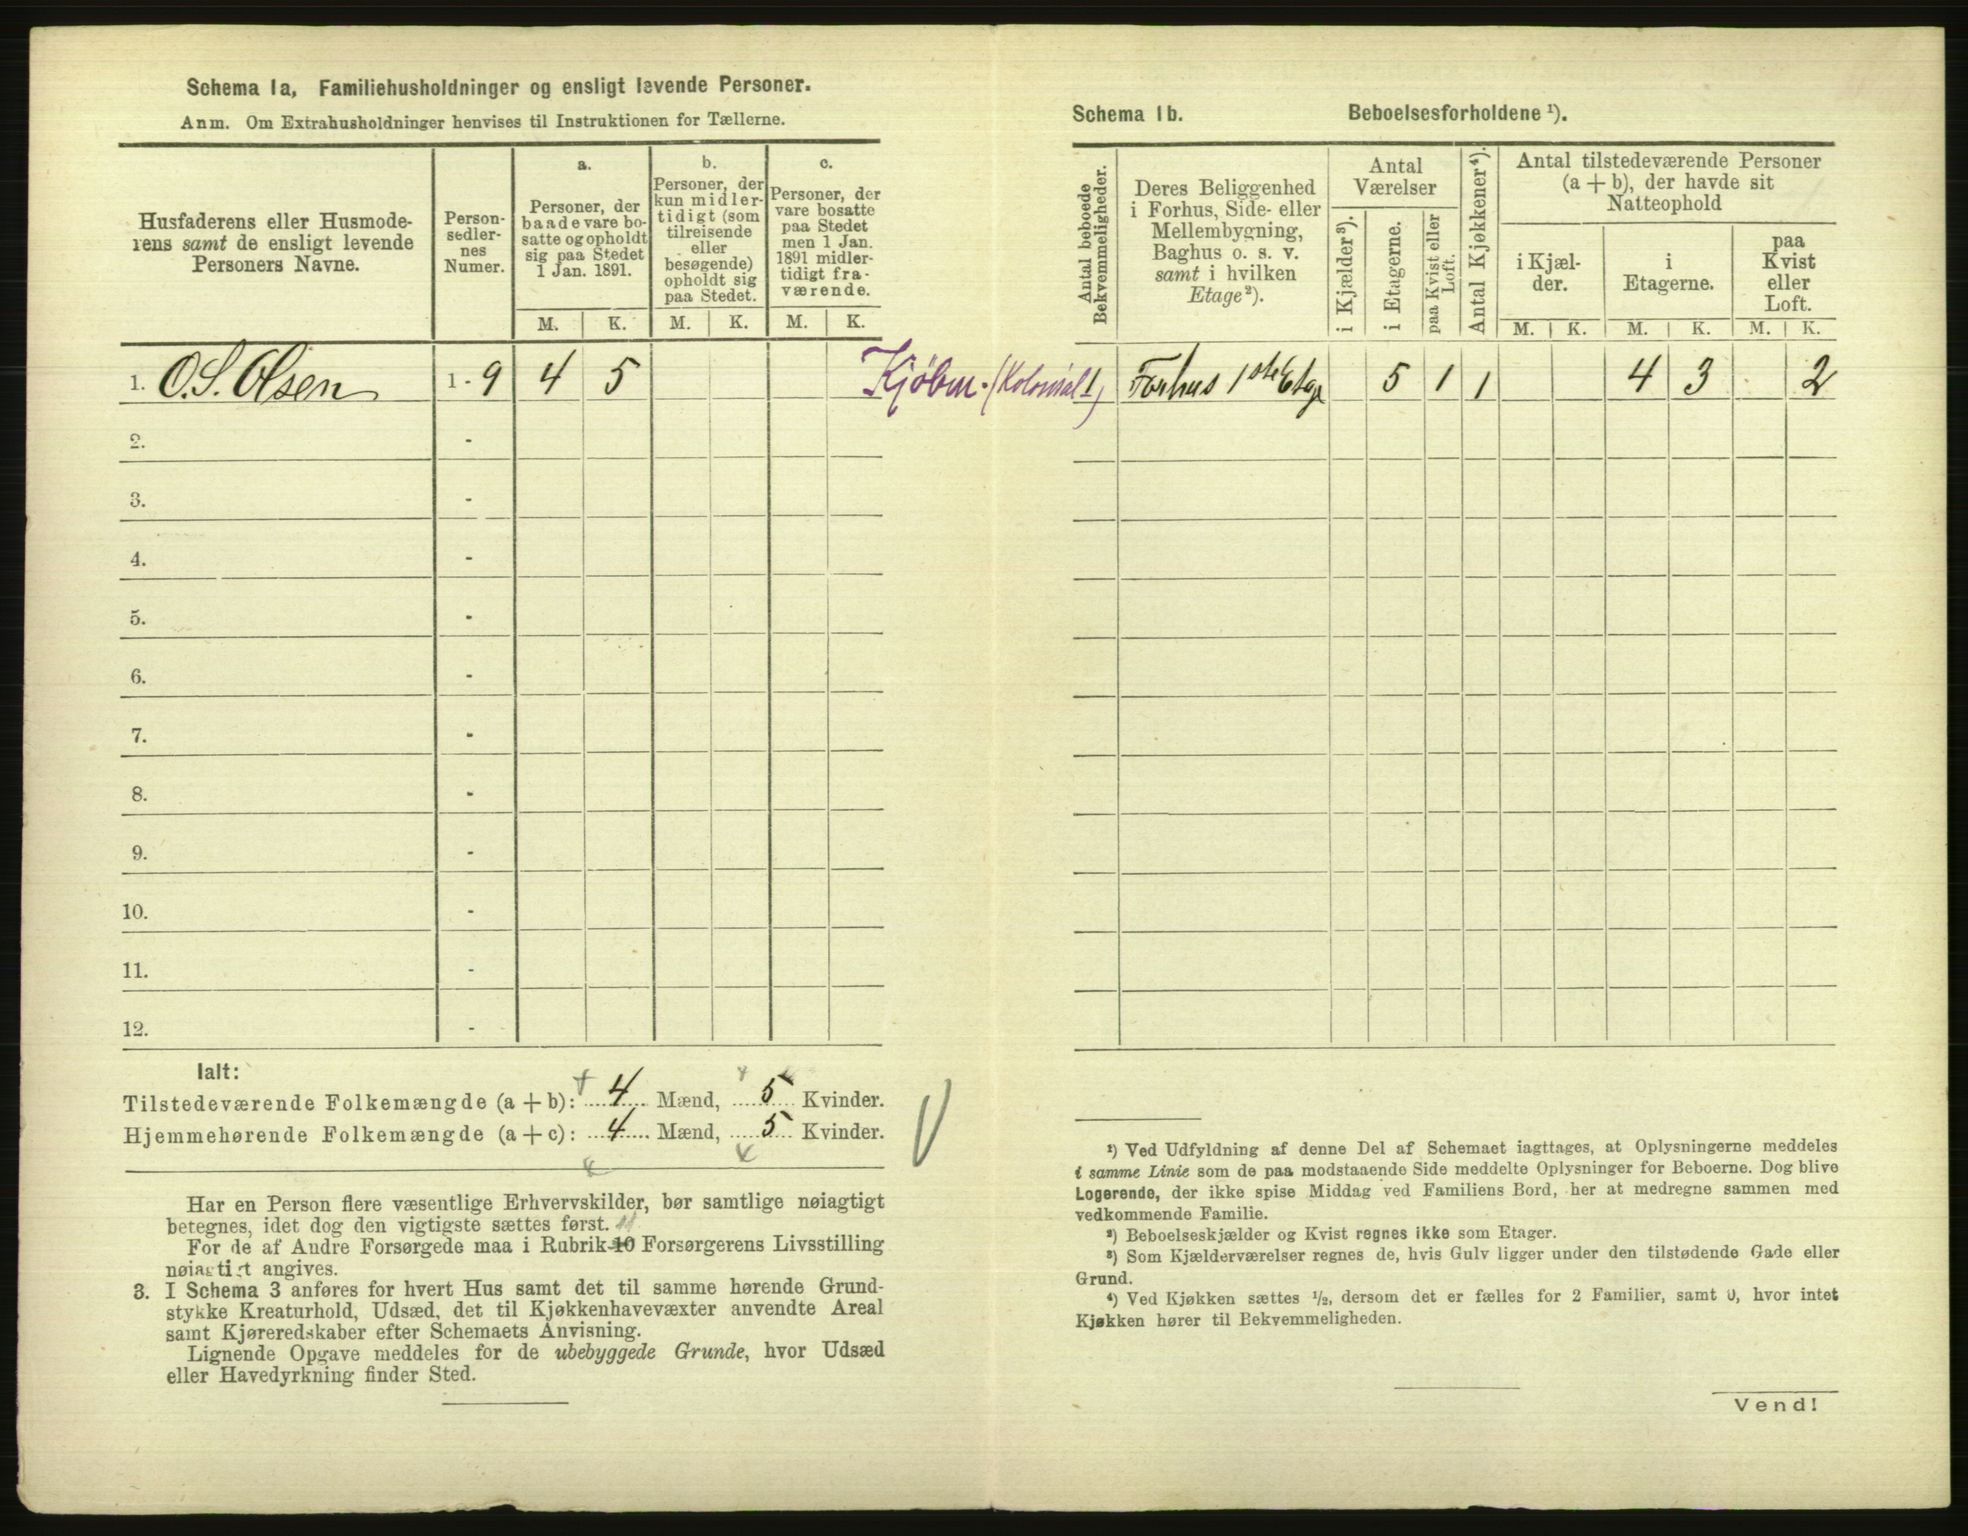 Schema 1a, Familiehusholdninger og ensligt levende Personer.
Anm. Om Extrahusholdninger henvises til Instruktionen for Tællerne.
Husfaderens eller Husmode-
rens samt de ensligt levende
Personers Navne.
Person-
sedler-
nes
Numer.
a.
Personer, der
baade vare bo-
satte og opholdt
sig paa Stedet
1 Jan. 1891.
b.
Personer, der
kun midler-
tidigt (som
tilreisende
eller
besøgende)
opholdt sig
paa Stedet.
c.
Personer, der
vare bosatte
paa Stedet
men 1 Jan.
1891 midler-
tidigt fra-
værende.
M. K. M. K. M. K.
1. O. S. Olsen 1 - 9 4 5
2. -
3. -
4. -
5. -
6. -
7. -
8. -
9. -
10. -
11. -
12. -
Ialt:
Tilstedeværende Folkemængde (a + b): 4 Mænd, 5 Kvinder.
Hjemmehørende Folkemængde (a + c): 4 Mænd, 5 Kvinder.
Har en Person flere væsentlige Erhvervskilder, bør samtlige nøiagtigt
betegnes, idet dog den vigtigste sættes først.
For de af Andre Forsørgede maa i Rubrik 10 Forsørgerens Livsstilling
nøiagtigt angives.
3. I Schema 3 anføres for hvert Hus samt det til samme hørende Grund-
stykke Kreaturhold, Udsæd, det til Kjøkkenhavevæxter anvendte Areal
samt Kjøreredskaber efter Schemaets Anvisning.
Lignende Opgave meddeles for de ubebyggede Grunde, hvor Udsæd
eller Havedyrkning finder Sted.
Schema 1b. Beboelsesforholdene ¹).
Antal beboede
Bekvemmeligheder.
Deres Beliggenhed
i Forhus, Side- eller
Mellembygning,
Baghus o. s. v.
samt i hvilken
Etage²).
Antal
Værelser
i Kjælder³).
i Etagerne.
paa Kvist eller
Loft.
Antal Kjøkkener⁴).
Antal tilstedeværende Personer
(a + b), der havde sit
Natteophold
i Kjæl-
der.
i
Etagerne.
paa
Kvist
eller
Loft.
M. K. M. K. M. K.
Kjøbm. (Kolonial) 1 Forhus 1ste Etage 5 1 1 4 3 2
¹) Ved Udfyldning af denne Del af Schemaet iagttages, at Oplysningerne meddeles
i samme Linie som de paa modstaaende Side meddelte Oplysninger for Beboerne. Dog blive
Logerende, der ikke spise Middag ved Familiens Bord, her at medregne sammen med
vedkommende Familie.
²) Beboelseskjælder og Kvist regnes ikke som Etager.
³) Som Kjælderværelser regnes de, hvis Gulv ligger under den tilstødende Gade eller
Grund.
⁴) Ved Kjøkken sættes ½, dersom det er fælles for 2 Familier, samt 0, hvor intet
Kjøkken hører til Bekvemmeligheden.
Vend!